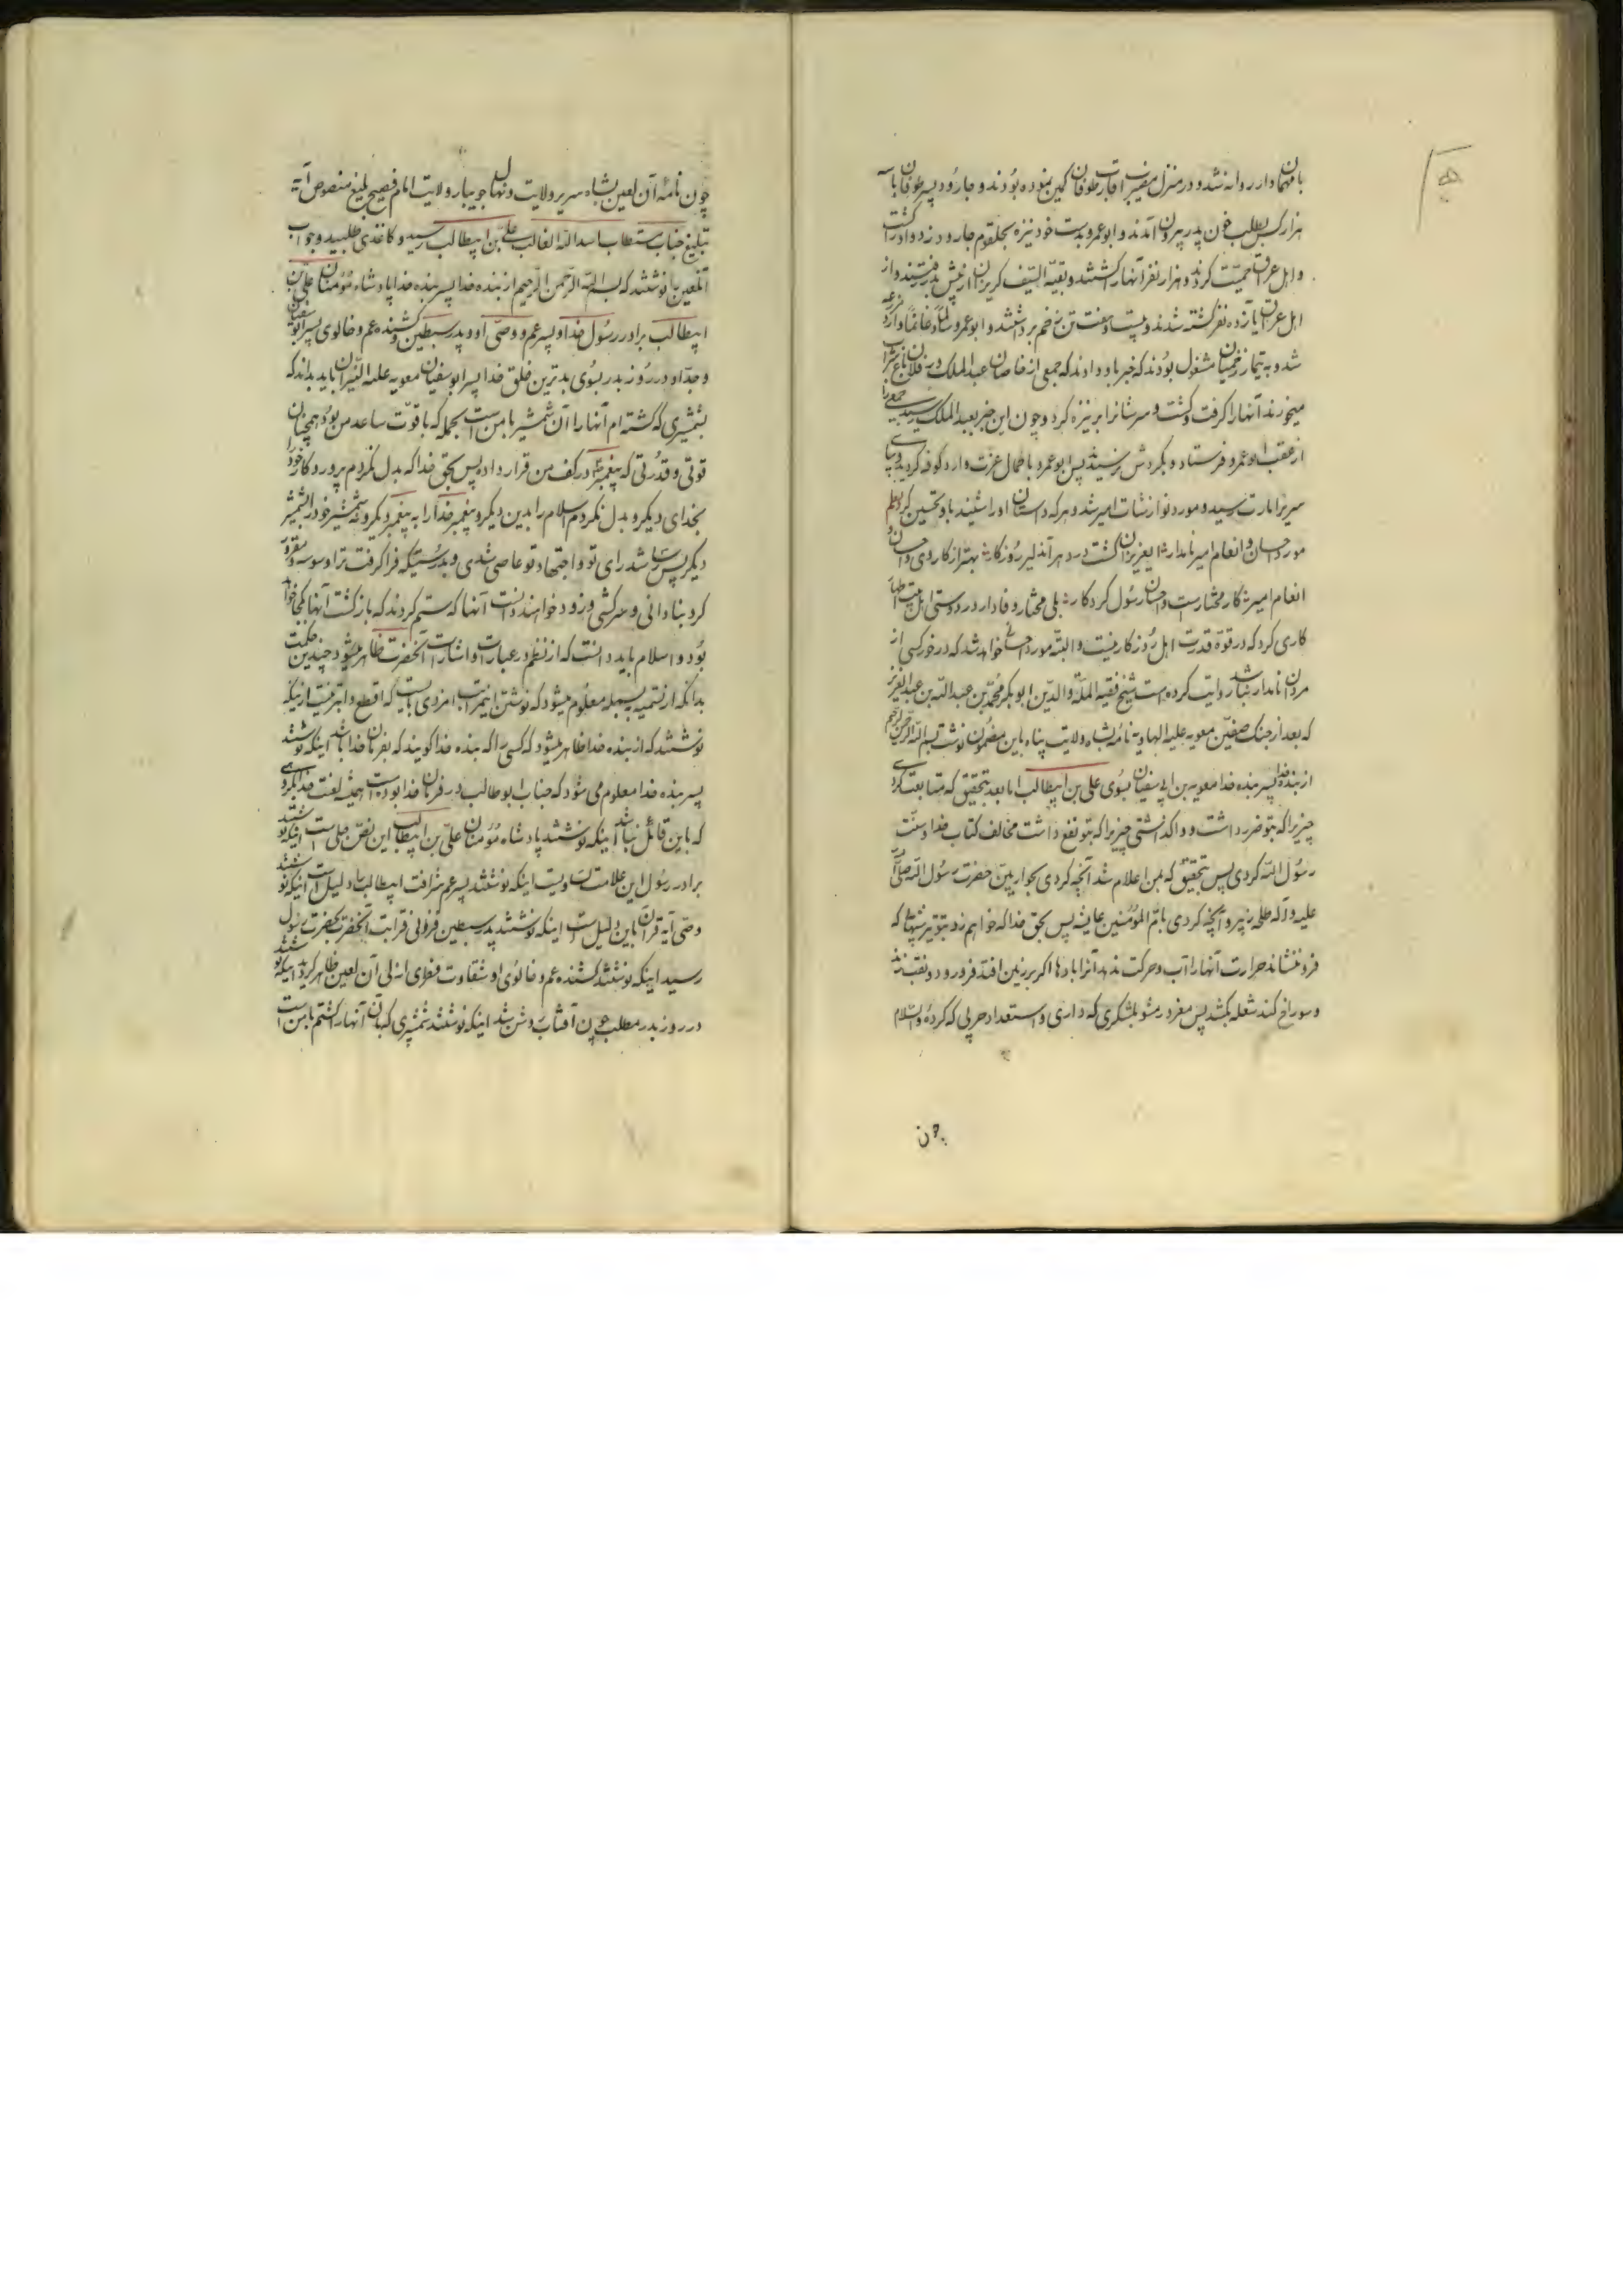 بامهماندار روانه نشد و در منزل اقارب طوفان کمین نموده بودند و جارود پسر طوفان با سه
هزار کس بطلب خون پدر بیرون آمدند و ابو عمرو بدست خود نیزه بحلقوم جارود زد و او را کشت
و اهل عراق حمیت کردند و هزار نفر آنها را کشتند و بقیة السیف کریزان از پیش بدر رفتند و از
اهل عراق یازده نفر کشته شدند و بیست و هفت تن زخم برداشتند و ابو عمرو سالماً و غانماً وارد مزرعه
شد و به تیمار زخمیان مشغول بودند که خبر باو دادند که جمعی از خاصان عبد الملک در فلان باغ شراب
میخورند آنها را کرفت و کشت و سرشانرا بر نیزه کرد و چون این خبر بعبد الملک رسید جمعی را
از عقب ابو عمرو فرستاد و بکردش نرسیدند پس ابو عمرو با کمال عزت وارد کوفه کردید و بپای
سریر امارت رسید و مورد نوازشات امیر شد و هر که داستان او را شنید باو تحسین کرد
مورد احسان و انعام امیر نامدار شد ایعزیزان کشت در دهر آندلیر روزکار بهتر از کار وی و احسان و
انعام امیر کار مختارست و احسان رسول کردکار بلی مختار وفادار در دوستی اهل بیت اطهار
کاری کرد که در قوه قدرت اهل روزکار نیست و البته مورد احسانی خواهد شد که در خور کسی از
مردان نامدار نباشد روایت کرده است شیخ فقیه الملة والدین ابو بکر محمد بن عبد الله بن عبد العزیز
که بعد از جنک صفین معویه علیه الهاویه نامه بشاه ولایت پناه باین مضمون نوشت بسم الله الرحمن الرحیم
از بنده خدا پسر بنده خدا معویه بن ابی سفیان بسوی علی بن ابیطالب اما بعد بتحقیق که متابعت کردی
چیزیرا که بتو ضرر داشت و واکذاشتی چیزیرا که بتو نفع داشت مخالف کتاب خدا و سنت
رسول الله کردی پس بتحقیق که بمن اعلام شد آنچه کردی بحواریین حضرت رسول الله صلی الله
علیه و آله طلحه و زبیر و آنچه کردی بام المؤمنین عایشه پس بحق خدا که خواهم زد بتو تیر شهابی که
فرو ننشاند حرارت آنها را آب و حرکت ندهد آنرا بادها اکر بر زمین افتد فرو رود و نقب زند
و سوراخ کند شعله بکشد پس مغرور مشو بلشکری که داری و استعداد حربی که کرده والسلام
چون
چون نامه آن لعین بشاه سریر ولایت و نهال جویبار ولایت امام فصیح بلیغ منصوص آیه
تبلیغ جناب مستطاب اسد الله الغالب علی بن ابیطالب رسید و کاغذی طلبید و جواب
آنلعین را نوشتند که بسم الله الرحمن الرحیم از بنده خدا پسر بنده خدا پادشاه مؤمنان علی بن
ابیطالب برادر رسول خدا و پسر عم و وصی او و پدر سبطین و کشنده عم و خالوی پسر ابو سفیان
و جد او در روز بدر بسوی بدترین خلق خدا پسر ابو سفیان معویه علیه النیران باید بداند که
بشمشیری که کشته ام آنها را آن شمشیر با من است بجمله که با قوت ساعد من بود همچنان
قوتی و قدرتی که پیغمبر در کف من قرار داده پس بحق خدا که بدل نکردم پروردکار خود را
بخدای دیکر و بدل نکردم اسلام را بدین دیکر و پیغمبر خدا را به پیغمبر دیکر و نه شمشیر خود را بشمشیر
دیکر پس شد رای تو و اجتهاد تو عاصی شدی و بدرستیکه فرا کرفت ترا وسوسه و مغرور
کرد بنادانی و سرکشی و زود خواهند دانست آنها که ستم کردند که بازکشت آنها بکجا خواهد
بود والسلام باید دانست که از نظم در عبارات و اشارات آنحضرت ظاهر میشود چندین حکمت
بدانکه از تسمیه بسمله معلوم میشود که نوشتن اینمراتب امر ذی بالیست که اقطع و ابتر نیست از اینکه
نوشتند که از بنده خدا ظاهر میشود که کسی را که بنده خدا کویند که بفرمان خدا باشد اینکه نوشتند
پسر بنده خدا معلوم می شود که جناب ابو طالب در فرمان خدا بوده است همیشه لعنت خدا بکروهی
که باین قائل نباشد اینکه نوشتند پادشاه مؤمنان علی بن ابیطالب این نص جلی است اینکه نوشتند
برادر رسول این علامت تسویت اینکه نوشتند پسر عم شرافت ابیطالب را دلیل است اینکه نوشتند
وصی آیه قران باین دلیل است اینکه نوشتند پدر سبطین فزونی قرابت آنحضرت بحضرت رسول
رسید اینکه نوشتند کشنده عم و خالوی او شقاوت فطری ازلی آن لعین ظاهر کردید اینکه نوشتند
در روز بدر مطلب چون آفتاب روشن شد اینکه نوشتند شمشیری که بآن آنها را کشتم با من است